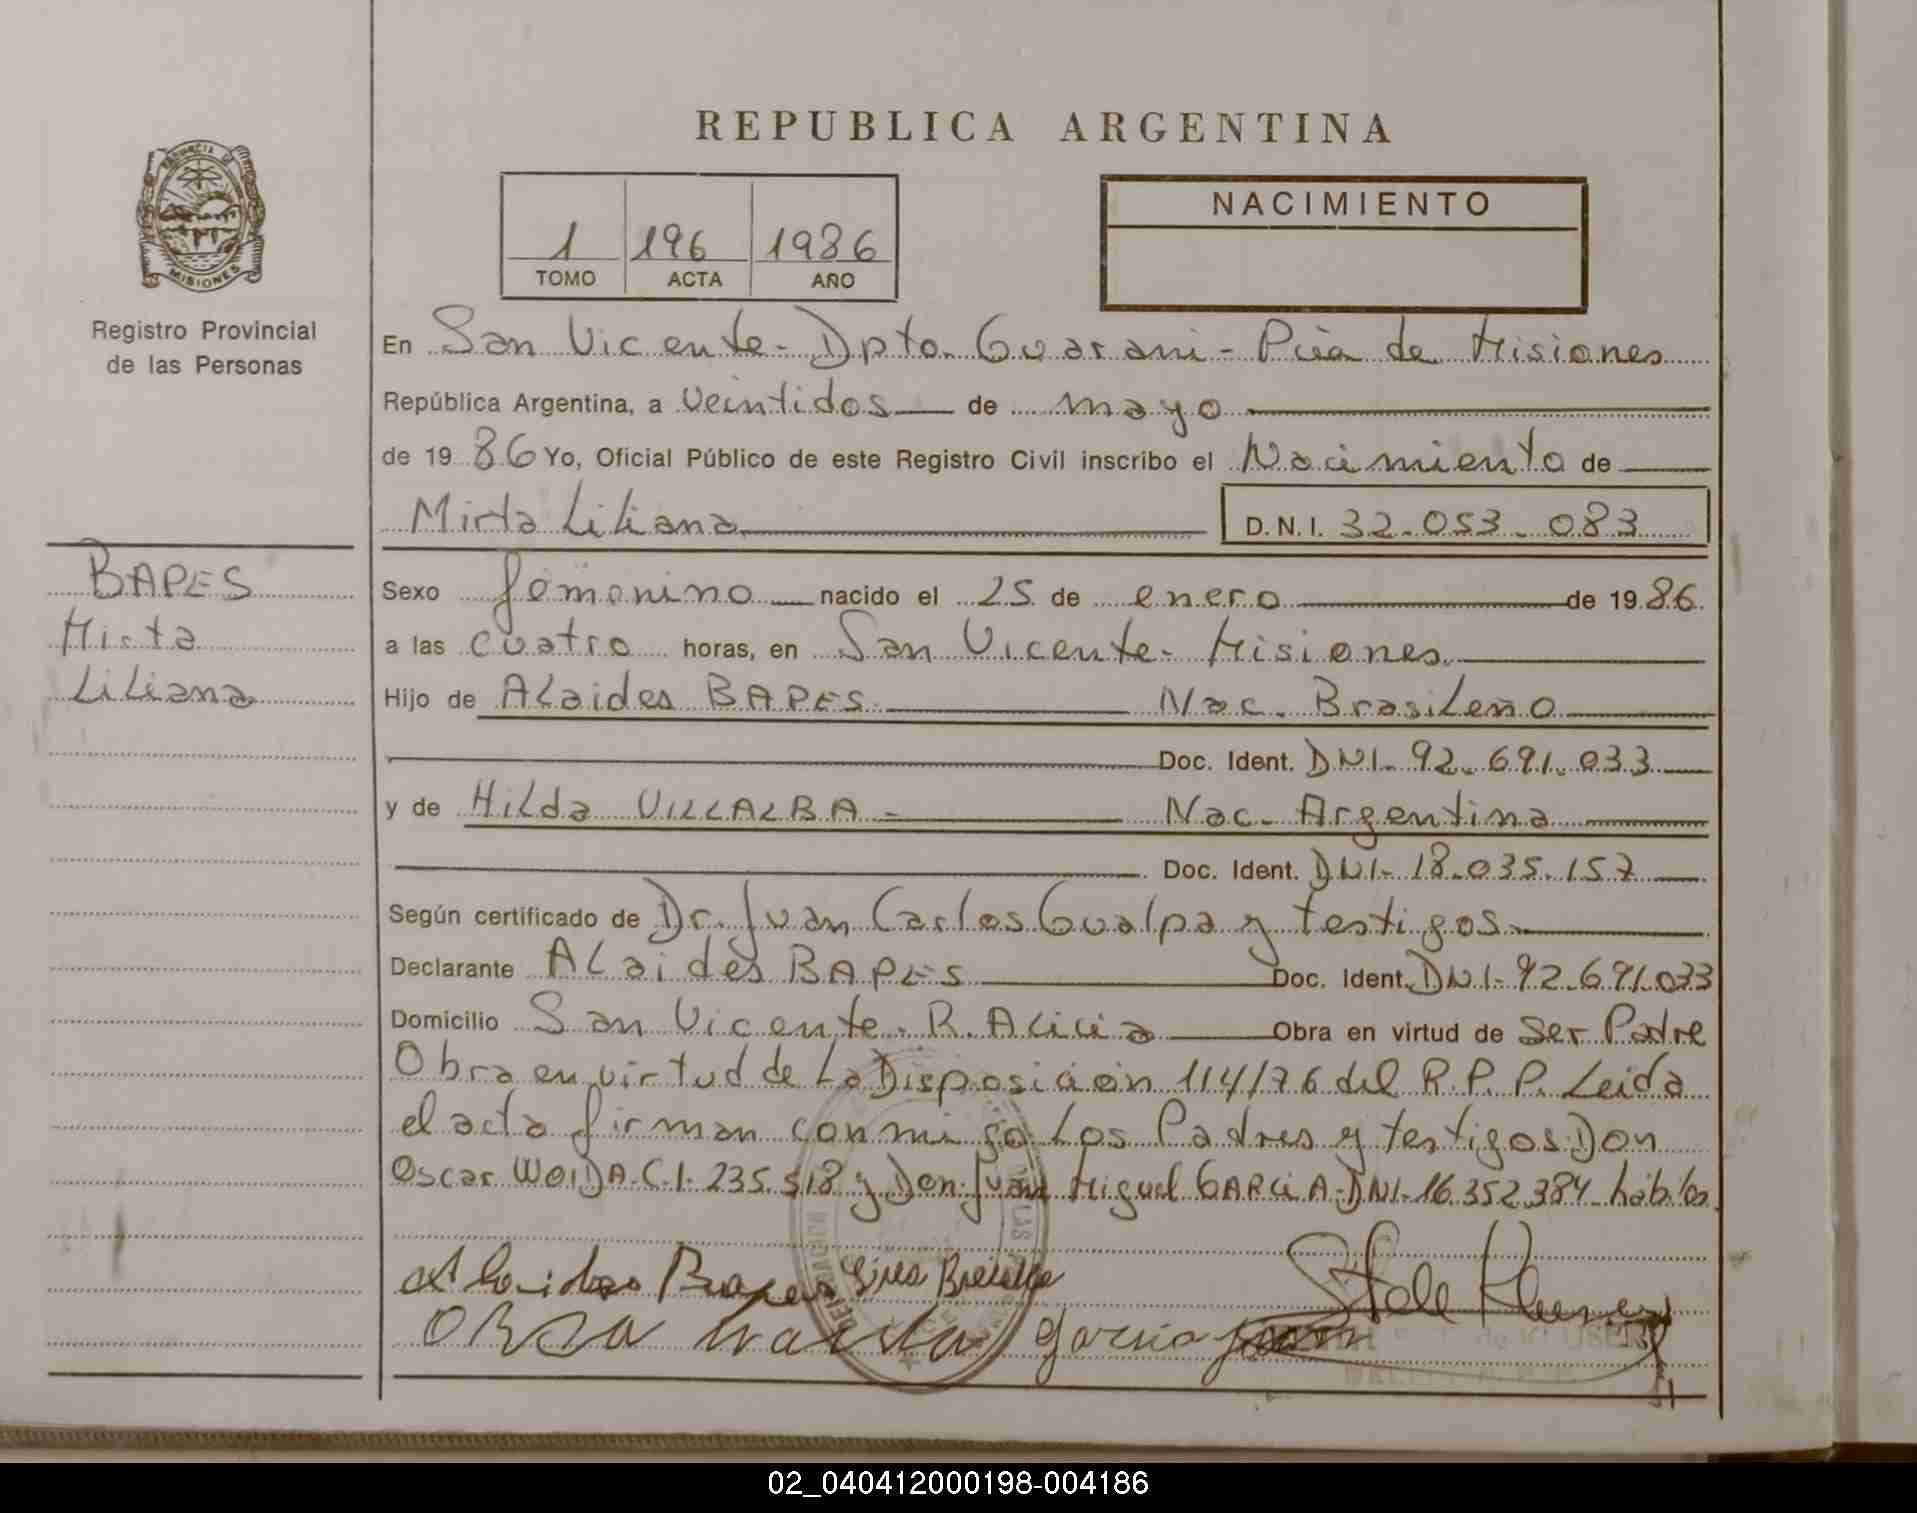 REPUBLICA ARGENTINA
PROVINCIA DE
MISIONES
Registro Provincial
de las Personas
1 196 1986
TOMO ACTA AÑO
NACIMIENTO
En San Vicente - Dpto. Guarani - Pcia de Misiones
República Argentina, a veintidos de mayo
de 19 86 Yo, Oficial Público de este Registro Civil inscribo el Nacimiento de
Mirta Liliana D.N.I. 32.053.083
BAPES
Mirta
Liliana
Sexo femenino nacido el 25 de enero de 19 86.
a las cuatro horas, en San Vicente - Misiones.
Hijo de Alaides BAPES Nac. Brasileño
Doc. Ident. DNI- 92.691.033
y de Hilda VILLALBA - Nac. Argentina
Doc. Ident. DNI- 18.035.157
Según certificado de Dr. Juan Carlos Gualpa y testigos.
Declarante Alaides BAPES Doc. Ident. DNI- 92.691.033
Domicilio San Vicente. R. Alicia Obra en virtud de Ser Padre
Obra en virtud de La Disposición 114/76 del R.P.P. Leida
el acta firman conmigo Los Padres y testigos Don
Oscar WOIDA - C.I. 235.518 y Don Juan Miguel GARCIA - DNI- 16.352.384 hábiles
garcia juan
02_040412000198-004186